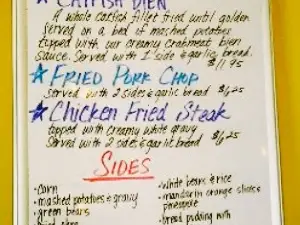 CATFISH BIEN
A whole catfish fillet fried until golden
served on a bed of mashed potatoes
topped with our creamy crabmeat bien
sauce. Served with 1 side & garlic bread.
$11.95
FRIED PORK CHOP
Served with 2 sides & garlic bread $6.25
Chicken Fried Steak
topped with creamy white gravy
Served with 2 sides & garlic bread $6.25
SIDES
•corn
•mashed potatoes & gravy
•green beans
•white beans & rice
•mandarin orange slices
pineapple
•bread pudding with